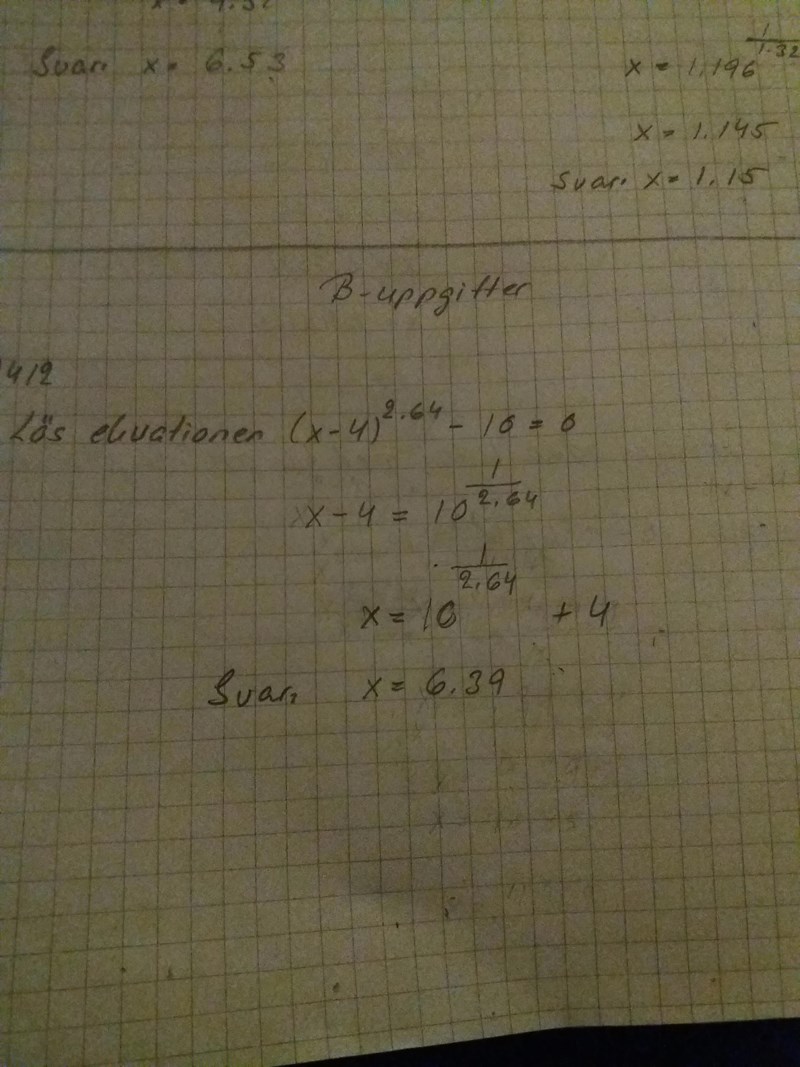 Svar: x = 6.53
x = 1.196^(1/1.32)
x = 1.145
Svar: x = 1.15
B-uppgifter
412
Lös ekvationen (x-4)^2.64 - 10 = 0
x - 4 = 10^(1/2.64)
x = 10^(1/2.64) + 4
Svar: x = 6.39